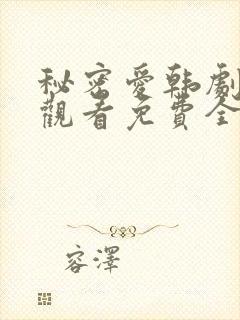 秘密愛韩劇
觀看免費全
容澤